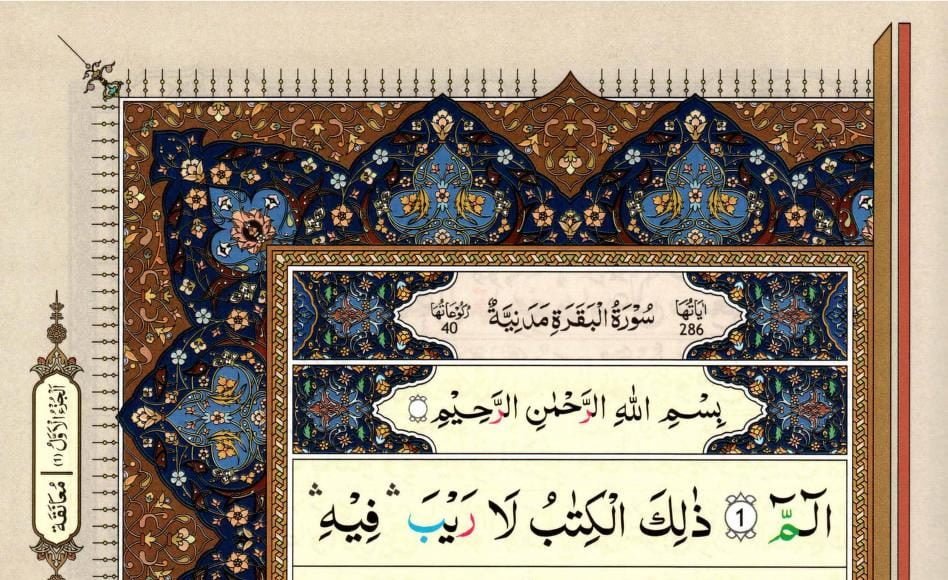 اٰيَاتُهَا 286 سُوْرَةُ الْبَقَرَةِ مَدَنِيَّةٌ رُكُوْعَاتُهَا 40
بِسْمِ اللهِ الرَّحْمٰنِ الرَّحِيْمِ
الٓمّٓ ۝1 ذٰلِكَ الْكِتٰبُ لَا رَيْبَ ۛ فِيْهِ ۛ
اَلْجُزْءُ الْاَوَّلُ (1)
مُعَانَقَة